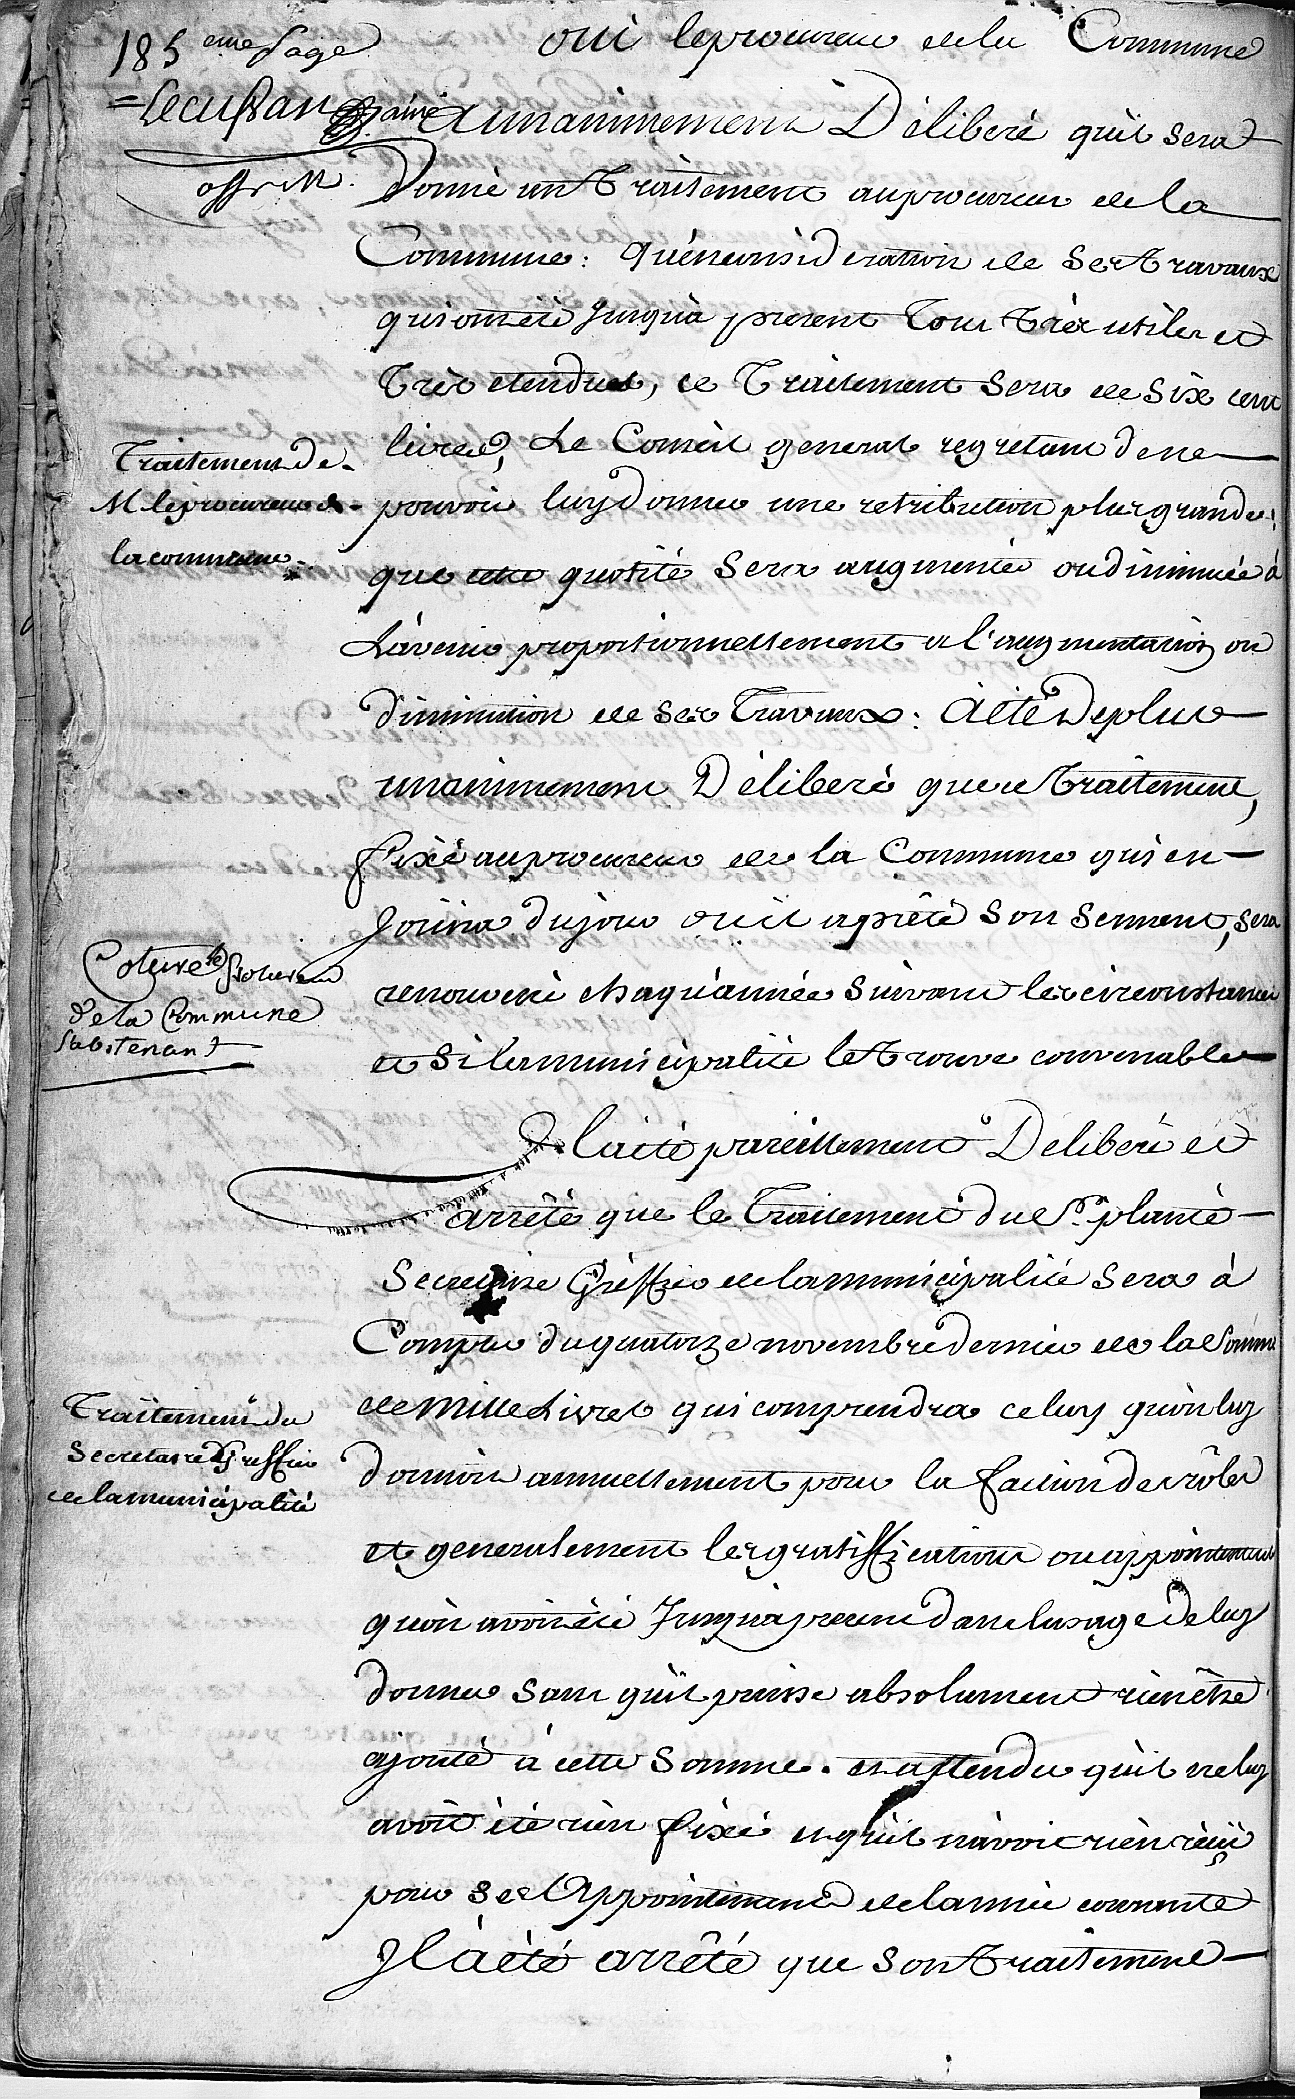 185 eme page
oui le procureur de la Commune
Lecussan ainé
off. M.
a unanimement Déliberé qu'il sera
donné un traitement au procureur de la
Commune: qu'en considération de ses travaux
qui ont été jusqu'à present tous très utiles et
très etendues, ce traitement sera de six cent
livres, Le Conseil general regrétant de ne
pouvoir luy donner une retribution plus grande;
que cette quotité sera augmentée ou diminuée à
L'avenir proportionnellement a l'augmentation ou
diminution de ses travaux: à été De plus
unanimement Déliberé que ce traitement,
fixé au procureur de la Commune qui en
Jouira du jour ou il a prêté son serment, sera
renouvelé chaqu'année suivant les circonstances
et si la municipalité le trouve convenable
Traitement de
M. le procureur de
la commune
procureur
de la Commune
Sabstenant
Il a été pareillement Deliberé et
arrêté que le traitement du Sr. planté
Secretaire Gréffier de la municipalité sera à
Compter du quatorze novembre dernier de la Somme
de Mille Livres qui comprendra celuy qu'on luy
donnoit annuellement pour la faction des rôles
et generalement les gratiffications ou appointements
qu'on avoit été Jusqu'à present dans l'usage de luy
donner sans qu'il puisse absolument rien être
ajouté à cette somme. et attendu qu'il ne luy
avoit été rien fixé et qu'il n'avoit rien reçü
pour ses Appointements de l'année courante
Il a été arrêté que son traitement
Traitement du
Secretaire Greffier
de la municipalité